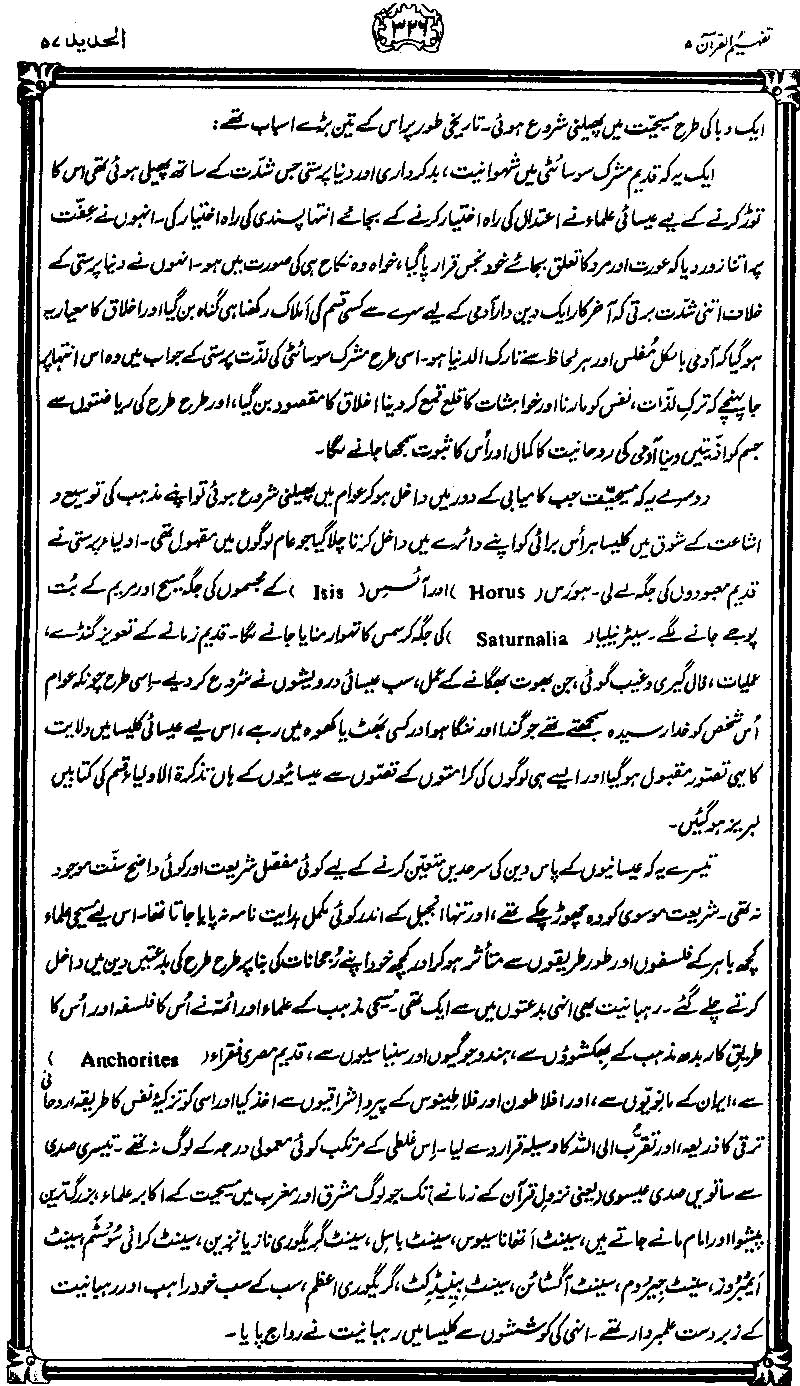 تفہیم القرآن ۵
۳۲۶
الحدید ۵۷
ایک وبا کی طرح مسیحیت میں پھیلنی شروع ہوئی۔ تاریخی طور پر اس کے تین بڑے اسباب تھے:
ایک یہ کہ قدیم مشرک سوسائٹی میں شہوانیت، بدکرداری اور دنیا پرستی جس شدّت کے ساتھ پھیل ہوئی تھی اس کا
توڑ کرنے کے لیے عیسائی علماء نے اعتدال کی راہ اختیار کرنے کے بجائے انتہا پسندی کی راہ اختیار کی۔ انہوں نے عِفّت
پر اتنا زور دیا کہ عورت اور مرد کا تعلق بجائے خود نجس قرار پا گیا، خواہ وہ نکاح ہی کی صورت میں ہو۔ انہوں نے دنیا پرستی کے
خلاف اتنی شدّت برتی کہ آخر کار ایک دین دار آدمی کے لیے سرے سے کسی قسم کی اَملاک رکھنا ہی گناہ بن گیا اور اخلاق کا معیار یہ
ہو گیا کہ آدمی بالکل مُفلس اور ہر لحاظ سے تارک الدنیا ہو۔ اسی طرح مشرک سوسائٹی کی لذّت پرستی کے جواب میں وہ اس انتہا پر
جا پہنچے کہ ترکِ لذّات، نفس کو مارنا اور خواہشات کا قلع قمع کر دینا اخلاق کا مقصود بن گیا، اور طرح طرح کی ریاضتوں سے
جسم کو اذیّتیں دینا آدمی کی روحانیت کا کمال اور اُس کا ثبوت سمجھا جانے لگا۔
دوسرے یہ کہ مسیحیّت جب کامیابی کے دور میں داخل ہو کر عوام میں پھیلنی شروع ہوئی تو اپنے مذہب کی توسیع و
اشاعت کے شوق میں کلیسا ہر اُس برائی کو اپنے دائرے میں داخل کرتا چلا گیا جو عام لوگوں میں مقبول تھی۔ اولیاء پرستی نے
قدیم معبودوں کی جگہ لے لی۔ ہورَس ( Horus ) اور آئسِس ( Isis ) کے مجسموں کی جگہ مسیح اور مریم کے بُت
پوجے جانے لگے۔ سیٹرنیلیا ( Saturnalia ) کی جگہ کرسمس کا تہوار منایا جانے لگا۔ قدیم زمانے کے تعویذ گنڈے،
عملیات، فال گیری و غیب گوئی، جن بھوت بھگانے کے عمل، سب عیسائی درویشوں نے شروع کر دیے۔ اِسی طرح چونکہ عوام
اُس شخص کو خدا رسیدہ سمجھتے تھے جو گندا اور ننگا ہو اور کسی بھٹ یا کھوہ میں رہے، اس لیے عیسائی کلیسا میں ولایت
کا یہی تصوّر مقبول ہو گیا اور ایسے ہی لوگوں کی کرامتوں کے قصّوں سے عیسائیوں کے ہاں تذکرۃ الاولیاء قسم کی کتابیں
لبریز ہو گئیں۔
تیسرے یہ کہ عیسائیوں کے پاس دین کی سرحدیں متعیّن کرنے کے لیے کوئی مفصّل شریعت اور کوئی واضح سنّت موجود
نہ تھی۔ شریعت موسوی کو وہ چھوڑ چکے تھے، اور تنہا انجیل کے اندر کوئی مکمل ہدایت نامہ نہ پایا جاتا تھا۔ اس لیے مسیحی علماء
کچھ باہر کے فلسفوں اور طور طریقوں سے متأثر ہو کر اور کچھ خود اپنے رُجحانات کی بنا پر طرح طرح کی بدعتیں دین میں داخل
کرتے چلے گئے۔ رہبانیت بھی انہی بدعتوں میں سے ایک تھی۔ مسیحی مذہب کے علماء اور ائمّہ نے اُس کا فلسفہ اور اُس کا
طریق کار بدھ مذہب کے بھکشوؤں سے، ہندو جوگیوں اور سنیاسیوں سے، قدیم مصری فقراء ( Anchorites )
سے، ایران کے مانویّوں سے، اور افلاطون اور فلاطینوس کے پیرو اِشراقیوں سے اخذ کیا اور اسی کو تزکیۂ نفس کا طریقہ، روحانی
ترقی کا ذریعہ، اور تقرّب الی اللہ کا وسیلہ قرار دے لیا۔ اِس غلطی کے مرتکب کوئی معمولی درجہ کے لوگ نہ تھے۔ تیسری صدی
سے ساتویں صدی عیسوی (یعنی نزول قرآن کے زمانے) تک جو لوگ مشرق اور مغرب میں مسیحیت کے اکابر علماء، بزرگ ترین
پیشوا اور امام مانے جاتے ہیں، سینٹ اَتھاناسیوس، سینٹ باسِل، سینٹ گریگوری نازیانزین، سینٹ کرائی سُوسْٹم، سینٹ
اَیمبروز، سینٹ جیروم، سینٹ آگسٹائن، سینٹ بینیڈکٹ، گریگوری اعظم، سب کے سب خود راہب اور رہبانیت
کے زبردست علمبردار تھے۔ انہی کی کوششوں سے کلیسا میں رہبانیت نے رواج پایا۔